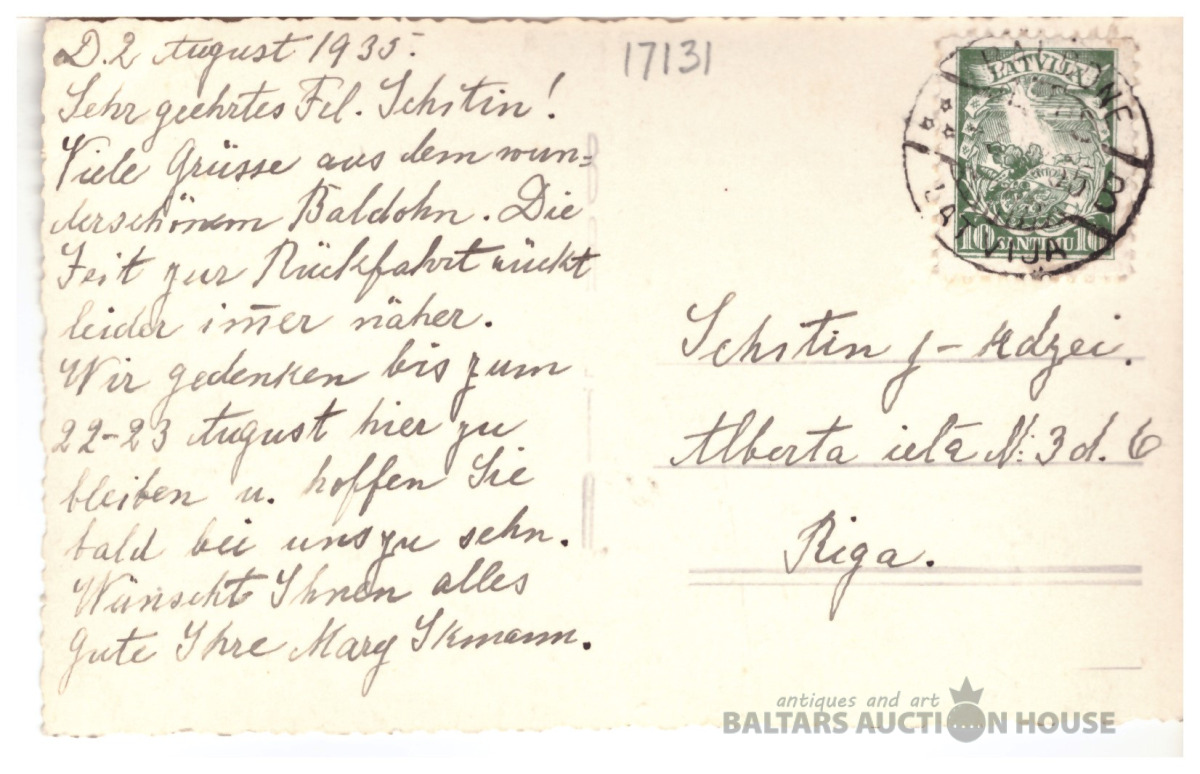 D. 2 August 1935.
Sehr geehrtes Frl. Schstin!
Viele Grüsse aus dem wun=
derschönem Baldohn. Die
Zeit zur Rückfahrt rückt
leider im̅er näher.
Wir gedenken bis zum
22-23 August hier zu
bleiben u. hoffen Sie
bald bei uns zu sehn.
Wünscht Ihnen alles
Gute Ihre Mary
17131
LATVIJA
10 SANTĪMU 10
BALDONE
LATVIJA
B
Schstin j-kdzei.
Alberta ielā N: 3 d. 6
Riga.
antiques and art
BALTARS AUCTION HOUSE